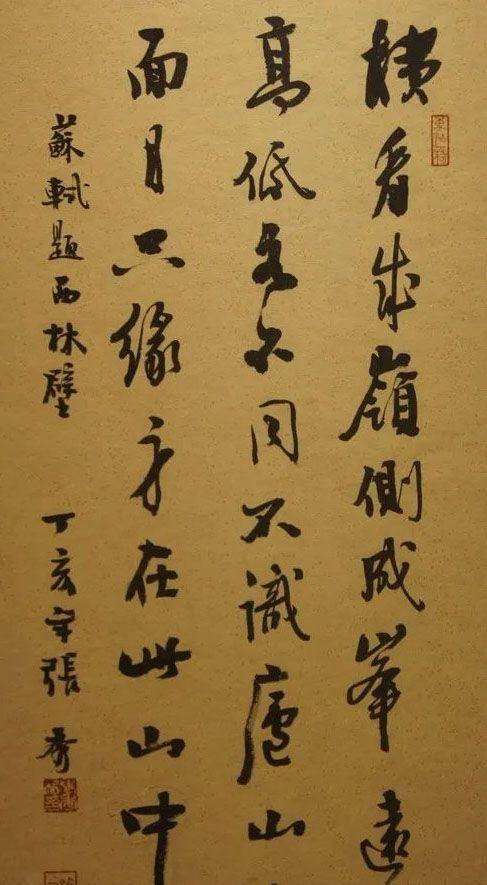 橫看成嶺側成峯遠
高低各不同不識廬山
面目只緣身在此山中
蘇軾題西林壁 丁亥 張